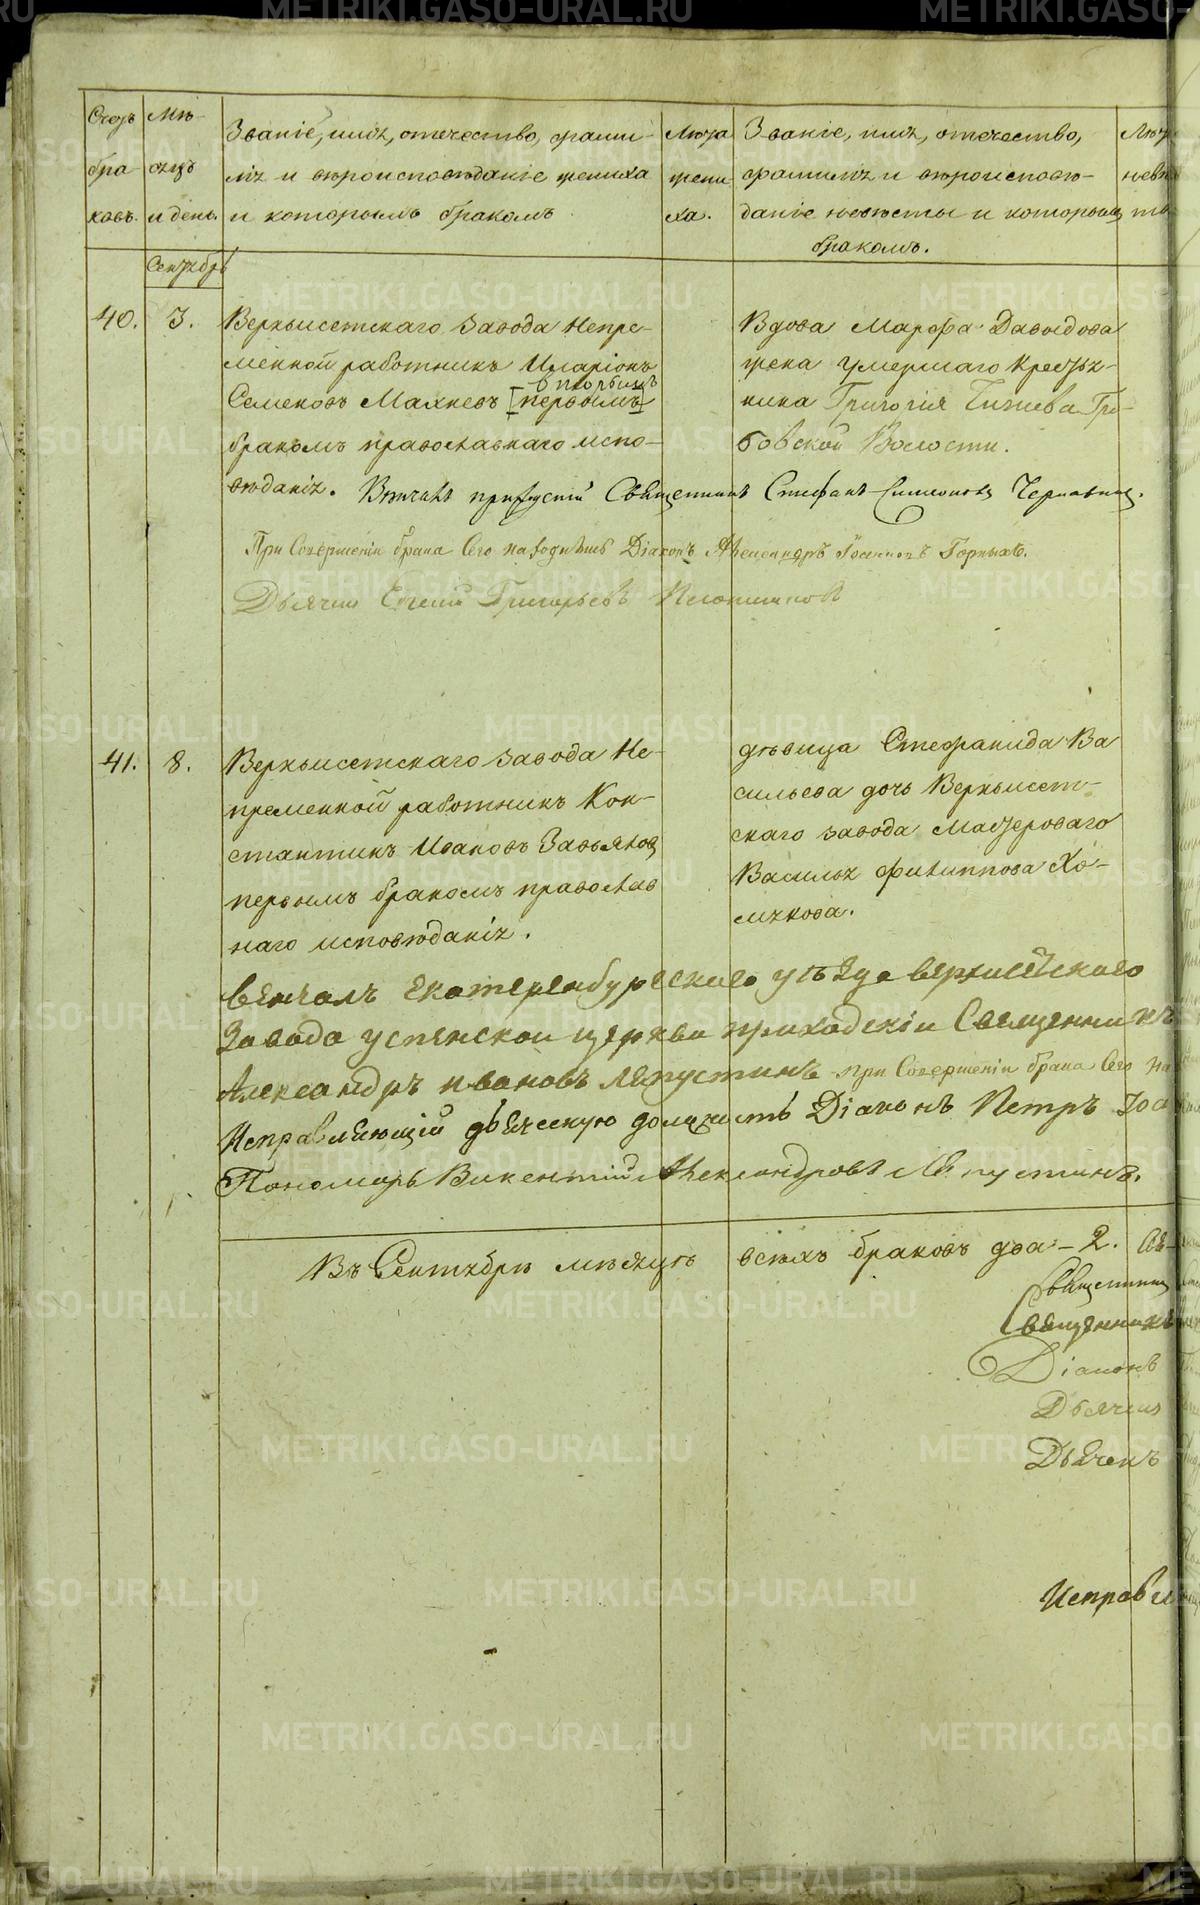 Счетъ браковъ.
Мѣсяцъ и день.
Званіе, имя, отечество, фами-
лія и вѣроисповѣданіе жениха
и которымъ бракомъ
Лѣта жениха.
Званіе, имя, отечество,
фамилія и вѣроисповѣ-
даніе невѣсты и которымъ
бракомъ.
Лѣта невѣ
Сентябрь
40.
3.
Верхъисетскаго завода Непре-
менной работникъ Иларіонъ
вторымъ
Семеновъ Махневъ [первымъ]
бракомъ православнаго испо-
вѣданія.
Вдова Марфа Давыдова
жена умершаго крестья-
нина Григорія Гро-
бовской Волости.
Венчалъ Священникъ Стефанъ Симеоновъ
При Совершеніи брака Сего находились Діаконъ Александръ Іоанновъ Горныхъ.
Дьячекъ Григорьевъ
41.
8.
Верхъисетскаго завода Не-
пременной работникъ Кон-
стантинъ Ивановъ Завьяловъ
первымъ бракомъ православ
наго исповѣданія.
дѣвица Стефанида Ва
сильева дочь Верхъисет-
скаго завода мастероваго
Василья Филиппова Хо-
мякова.
венчалъ екатеренбургскаго уѣзда верхисетскаго
завода успенской церкви приходскіи Священникъ
Александръ ивановъ Ляпустинъ при Совершеніи брака Сего на
Исправляющій дьяческую должность Діаконъ Петръ Іоа
Пономарь Викентій Александровъ Ляпустинъ.
Въ Сентябрѣ мѣсяцѣ всѣхъ браковъ два - 2. Св-
Священникъ
Священникъ
Діаконъ
Дьячекъ
Дьячекъ
Исправл
METRIKI.GASO-URAL.RU